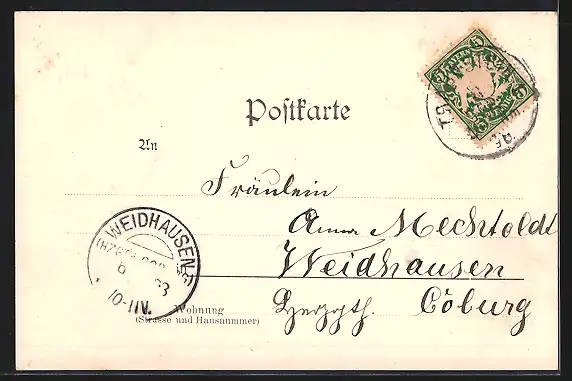 BAYERN
5 5
5 5
Postkarte
An
Fräulein
Anna Mechtoldt
Weidhausen
Herzogth. Coburg
WEIDHAUSEN
(HZGTH. COB
6 03
10-11V.
Wohnung
(Strasse und Hausnummer)